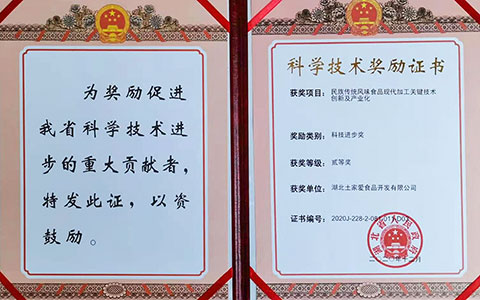 为奖励促进
我省科学技术进
步的重大贡献者，
特发此证，以资
鼓励。
科学技术奖励证书
获奖项目：民族传统风味食品现代加工关键技术
创新及产业化
奖励类别：科技进步奖
获奖等级：贰等奖
获奖单位：湖北土家爱食品开发有限公司
证书编号：2020J-228-2-08
湖北省人民政府